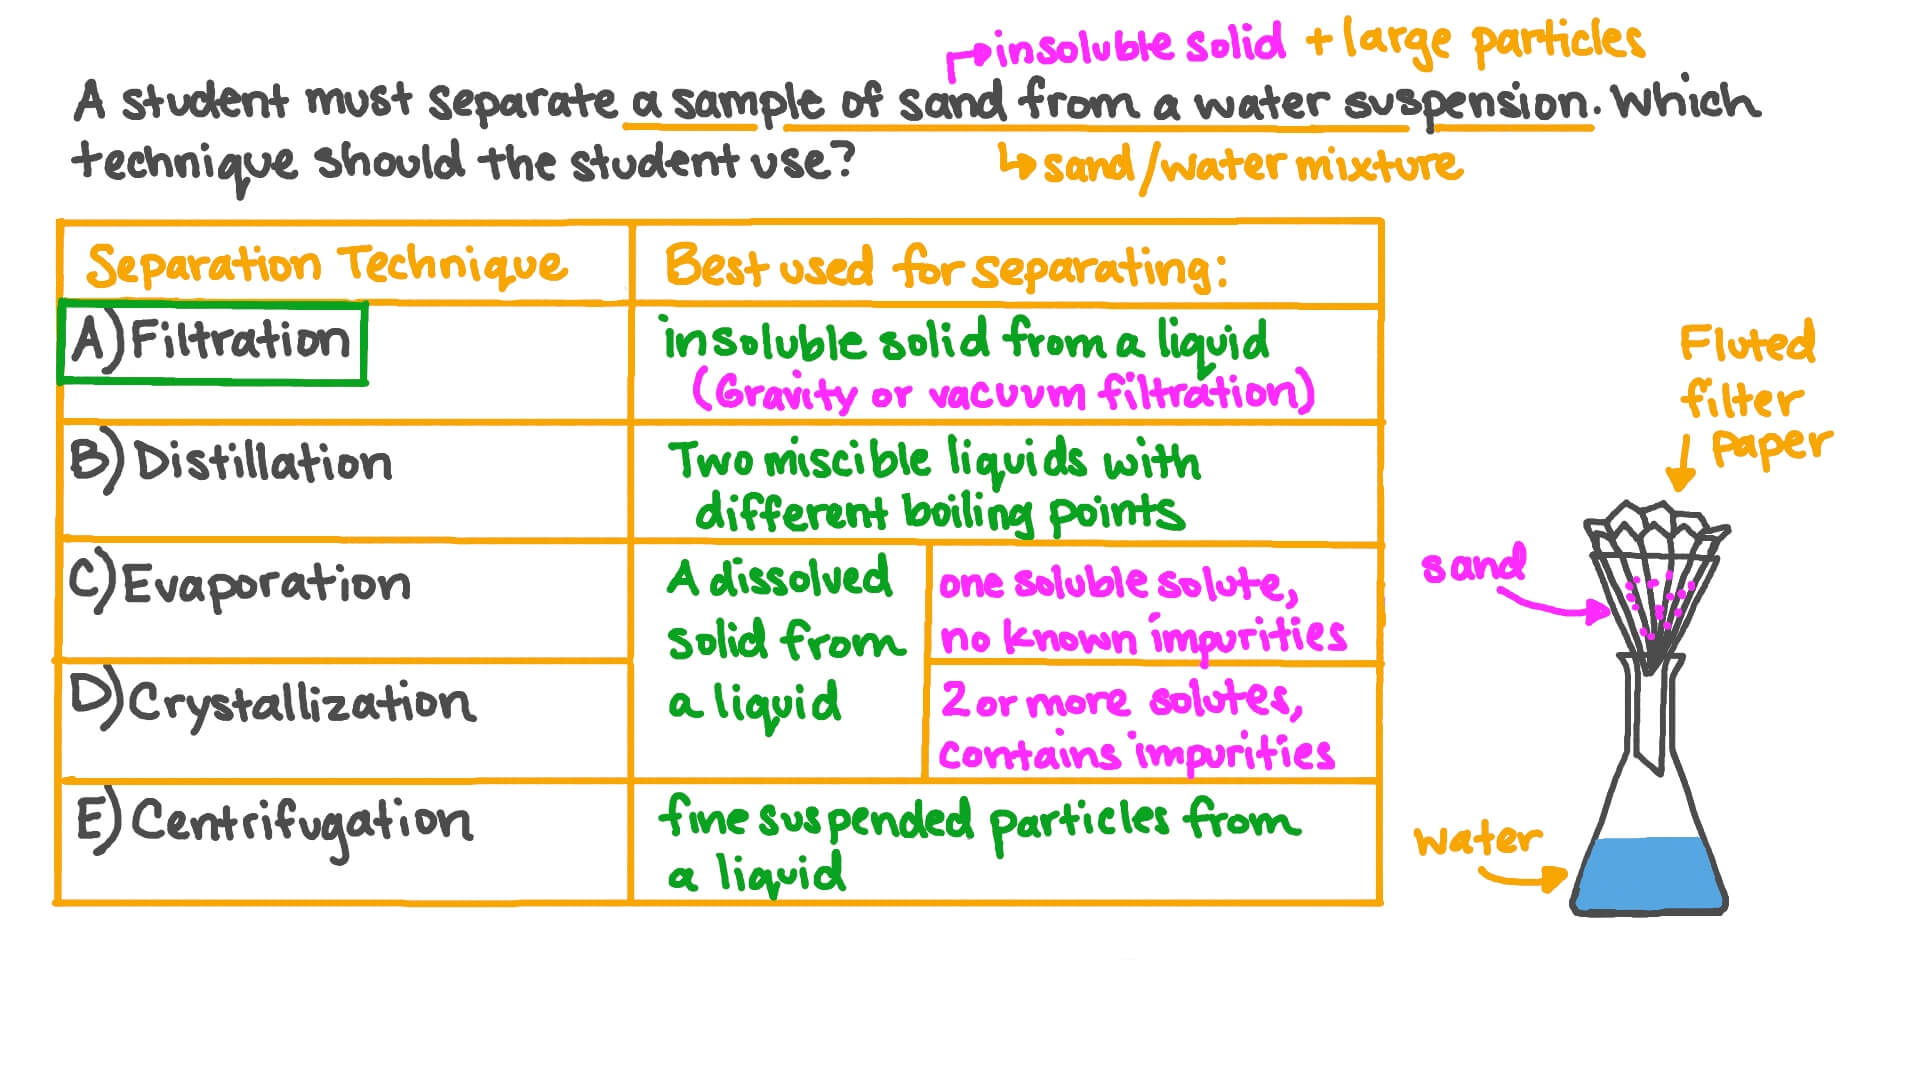 insoluble solid + large particles
A student must separate a sample of sand from a water suspension. Which
technique should the student use?
sand/water mixture
Separation Technique
Best used for separating:
A) Filtration
insoluble solid from a liquid
(Gravity or vacuum filtration)
B) Distillation
Two miscible liquids with
different boiling points
C) Evaporation
A dissolved
solid from
a liquid
one soluble solute,
no known impurities
D) Crystallization
2 or more solutes,
contains impurities
E) Centrifugation
fine suspended particles from
a liquid
Fluted
filter
paper
sand
water